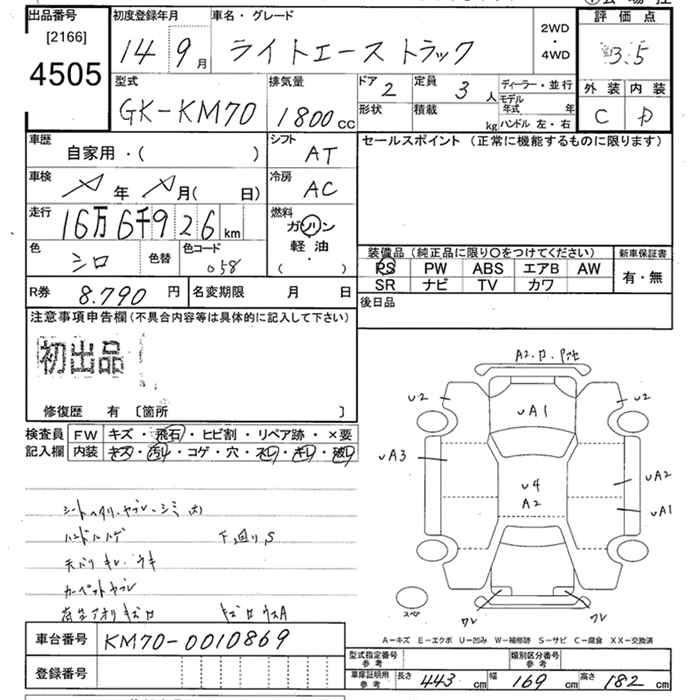 出品番号
[2166]
4505
初度登録年月
14 9月
車名・グレード
ライトエース トラック
2WD
・
4WD
評 価 点
3.5
型式
GK-KM70
排気量
1800 CC
ドア 2
定員 3 人
ディーラー・並行
形状
積載 kg
モデル年式 年
ハンドル 左・右
外 装 内 装
C D
車歴
自家用・( )
シフト
AT
車検
年 月( 日)
冷房
AC
走行
16万6千926km
燃料
ガソリン
軽 油
( ・ )
色
シロ
色替
色コード
058
R券 8.790 円
名変期限 月 日
セールスポイント (正常に機能するものに限ります)
装備品 (純正品に限り〇をつけてください)
新車保証書
PS PW ABS エアB AW
SR ナビ TV カワ
有・無
後日品
注意事項申告欄(不具合内容等は具体的に記入して下さい)
初出品
修復歴 有 [箇所 ]
検査員 FW キズ・飛石・ヒビ割・リペア跡・×要
記入欄 内装 キズ・汚レ・コゲ・穴・スレ・キレ・破レ
ハンドルハゲ
下廻りS
カーペットヤブレ
U2
U2
UA1
UA3
U4
A2
UA2
UA1
スペア
ワレ
ワレ
A-キズ E-エクボ U-凹み W-補修跡 S-サビ C-腐食 XX-交換済
車台番号 KM70-0010869
登録番号
型式指定番号
参考
類別区分番号
参考
車庫証明用
参考
長さ 443 cm 幅 169 cm 高さ 182 cm